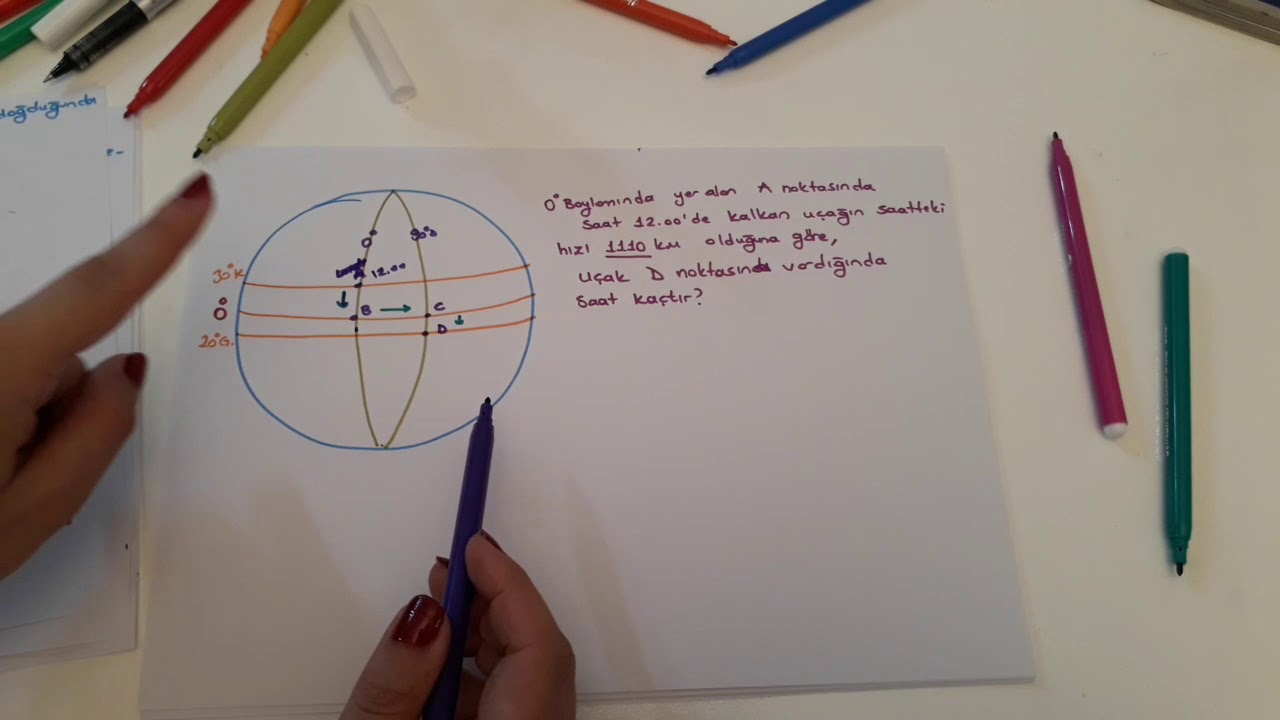 doğduğunda
0° Boylamında yer alan A noktasında
saat 12.00'de kalkan uçağın saatteki
hızı 1110 km olduğuna göre,
uçak D noktasında vardığında
saat kaçtır?
0°
30°K
12.00
0°
B
C
20°G.
D